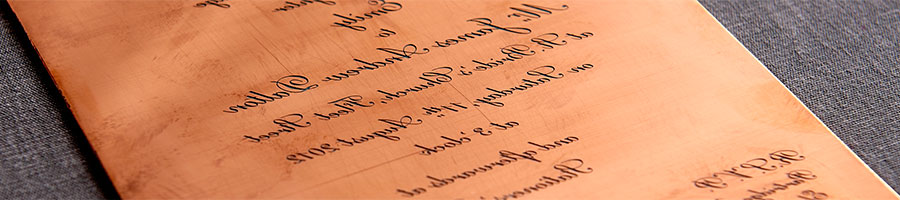 Emily
to
Mr. James Andrew Dalton
at St. Bride's Church, Fleet Street
on Saturday, 11th August 2012
at 3 o'clock
and afterwards at
Stationers'
R.S.V.P.